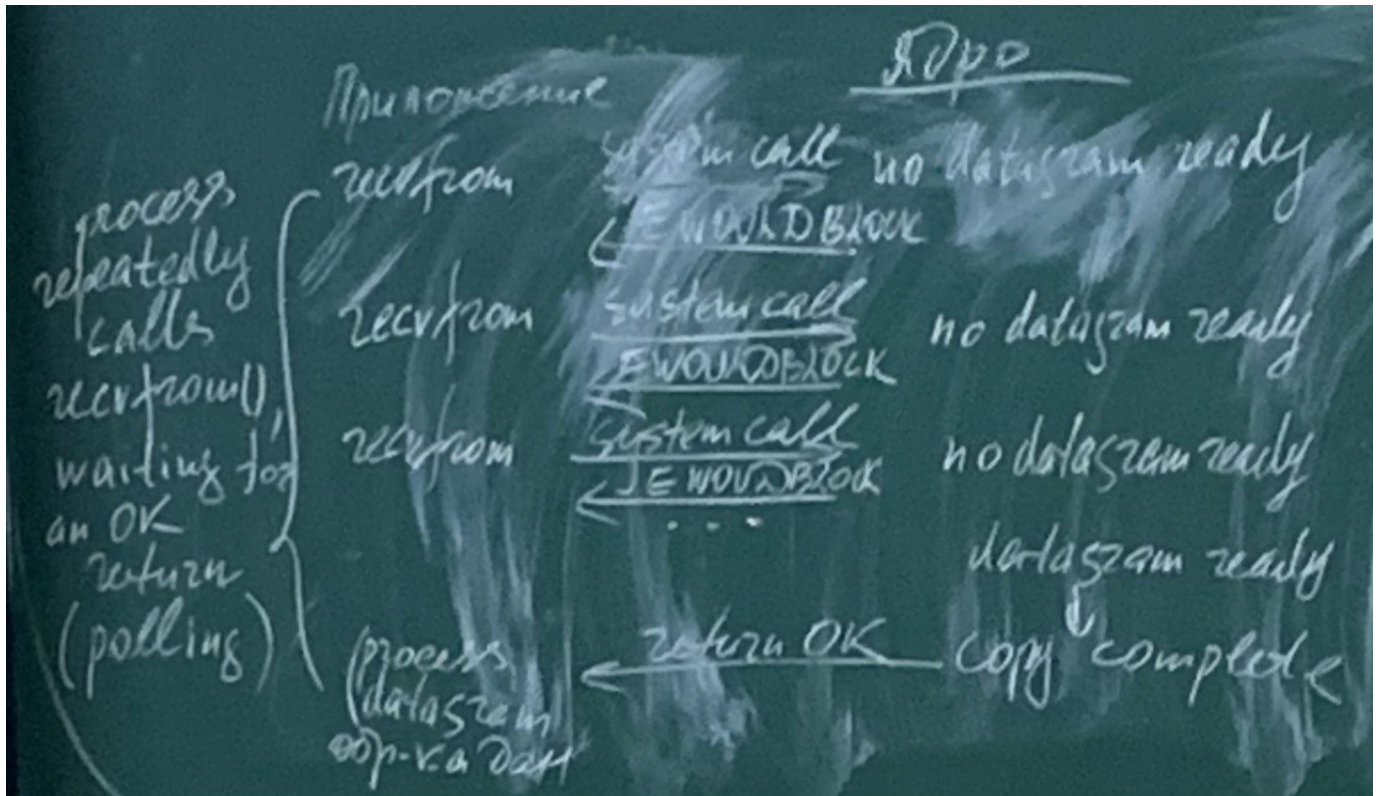 Приложение
Ядро
process
repeatedly
calls
recvfrom(),
waiting for
an OK
return
(polling)
recvfrom system call no datagram ready
EWOULDBLOCK
recvfrom system call no datagram ready
EWOULDBLOCK
recvfrom system call no datagram ready
EWOULDBLOCK
...
datagram ready
return OK copy complete
(process
datagram
обр-ка дан